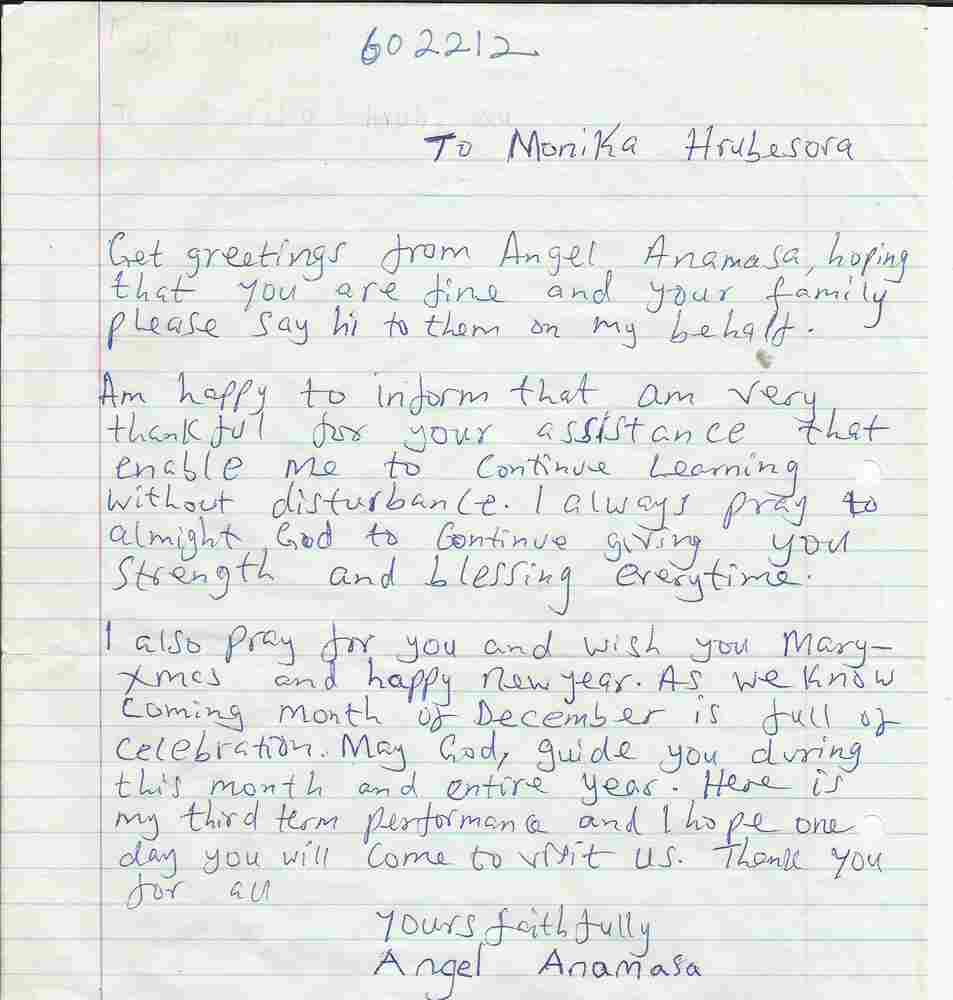 602212
To Monika Hrubesora
Get greetings from Angel Anamasa, hoping
that you are fine and your family
please say hi to them on my behalf.
Am happy to inform that am very
thankful for your assistance that
enable me to continue learning
without disturbance. I always pray to
almight God to Continue giving you
Strength and blessing everytime.
I also pray for you and wish you Mary-
xmas and happy new year. As we know
coming month of December is full of
celebration. May God, guide you during
this month and entire year. Here is
my third term performance and I hope one
day you will come to visit us. Thank you
for all
yours faithfully
Angel Anamasa